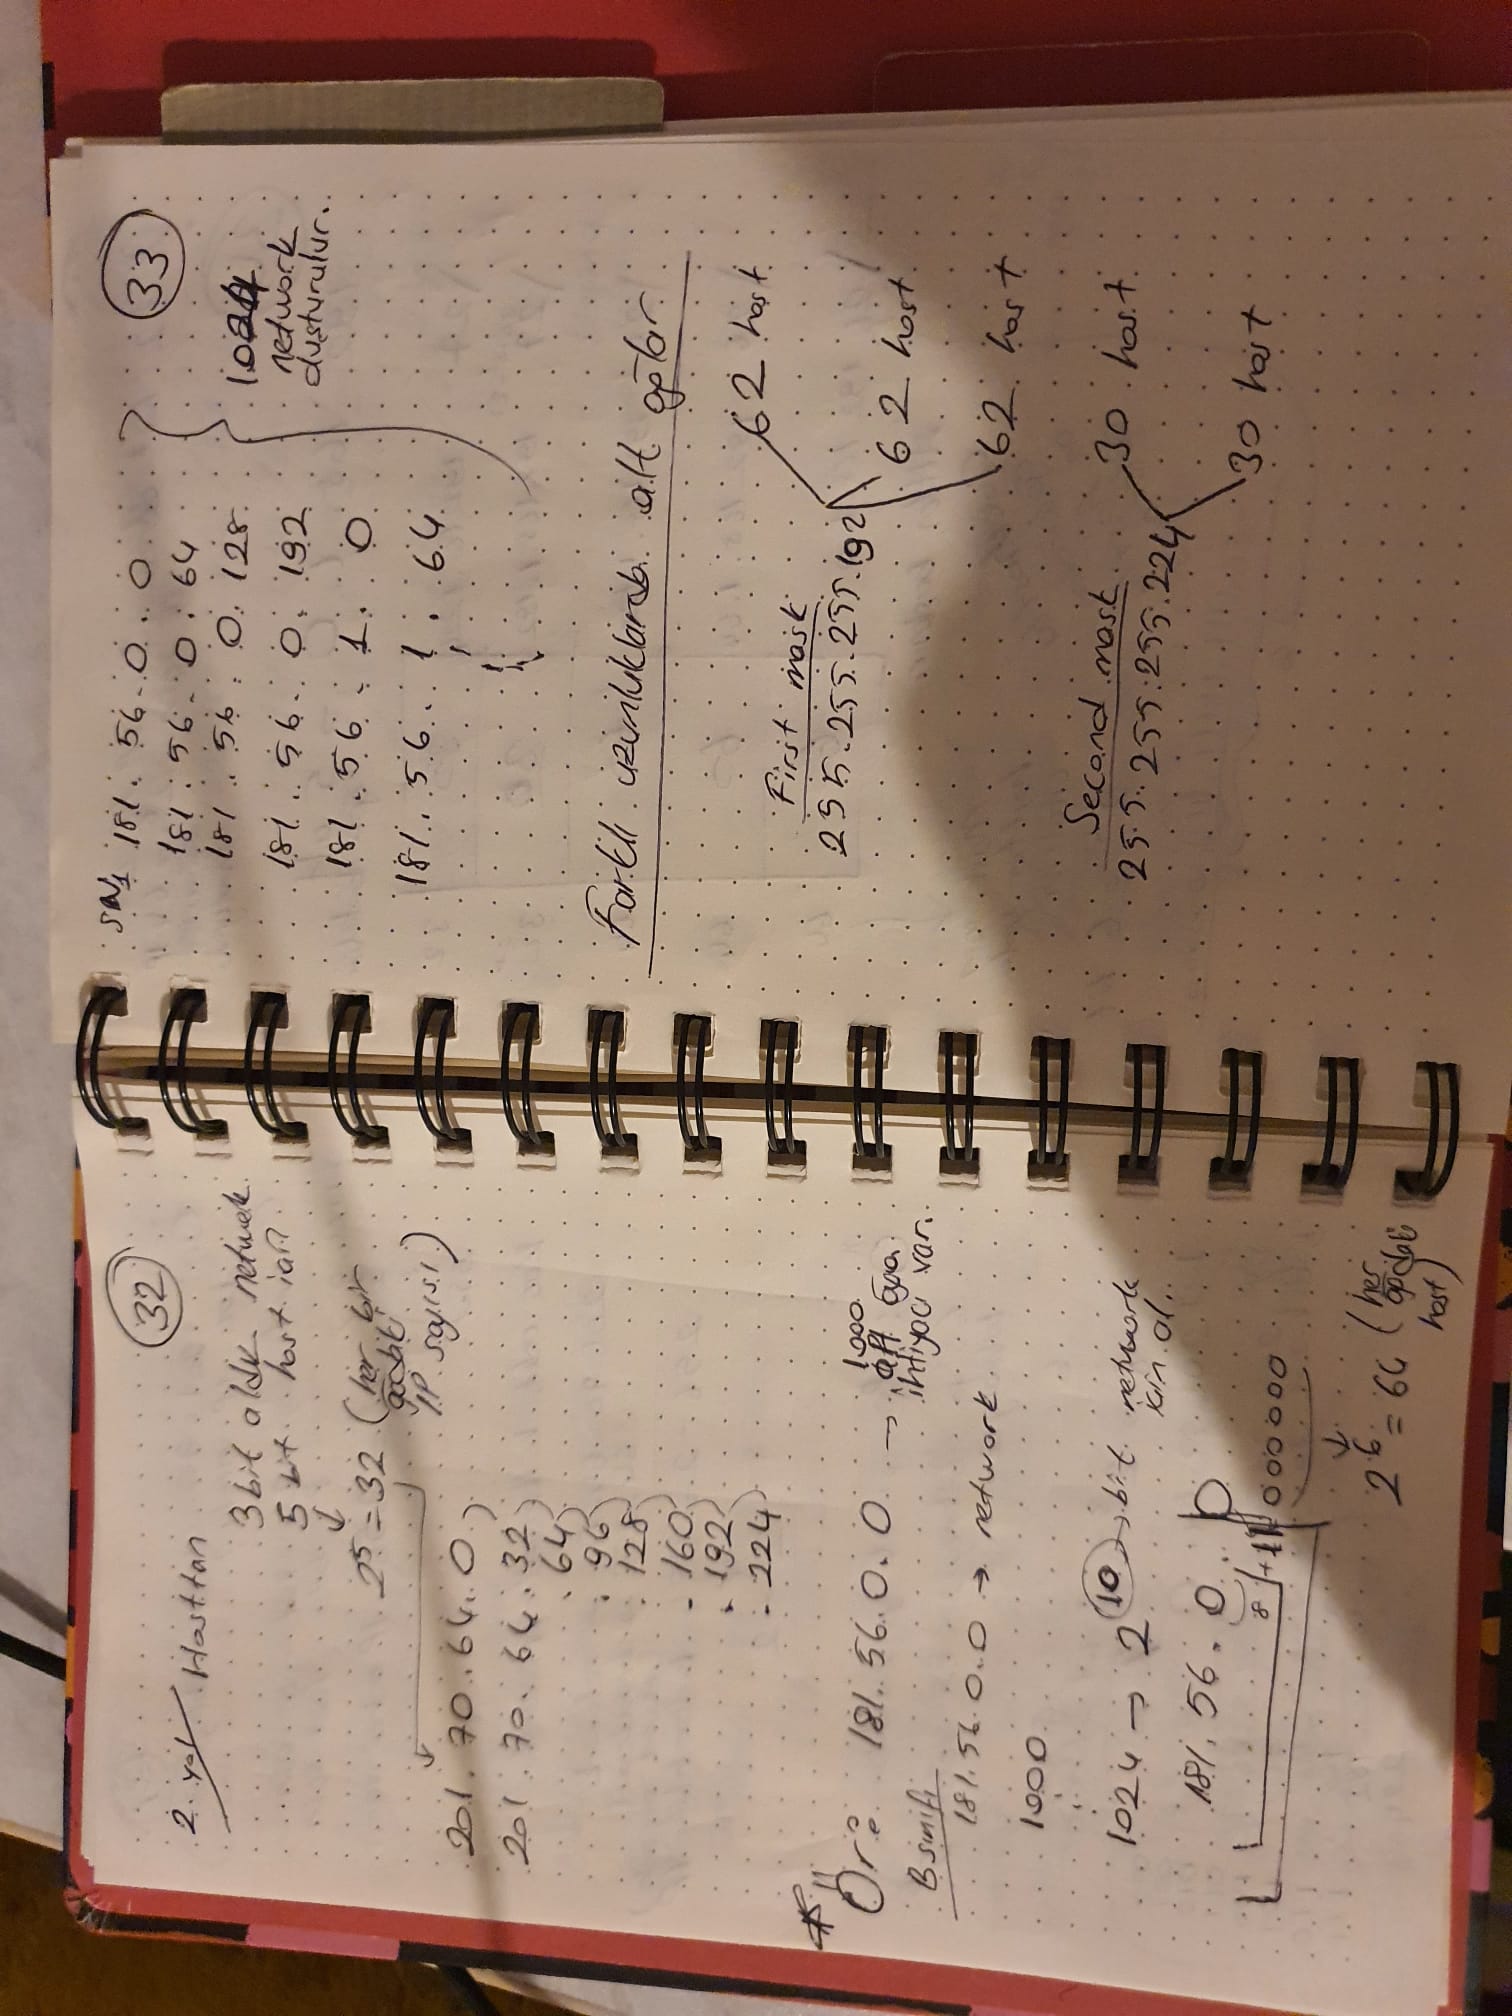 32
2. yol Hosttan
3 bit aldık network
5 bit host için
↓
2⁵ = 32 (her bir
ağdaki
IP sayısı)
201.70.64.0
201.70.64.32
.64
.96
.128
.160
.192
.224
* Ör: 181.56.0.0 → 1000
alt ağa
ihtiyacı var.
B sınıfı
181.56.0.0 → network
1000
1024 → 2¹⁰ → bit network
için al.
181.56.0.0
8 +11 000000
↓
2⁶ = 64 (her
ağdaki
host)
33
SN1 181.56.0.0
181.56.0.64
181.56.0.128
181.56.0.192
181.56.1.0
181.56.1.64
1024
network
oluşturulur.
Farklı uzunluklarda alt ağlar
First mask
255.255.255.192
62 host
62 host
62 host
Second mask
255.255.255.224
30 host
30 host